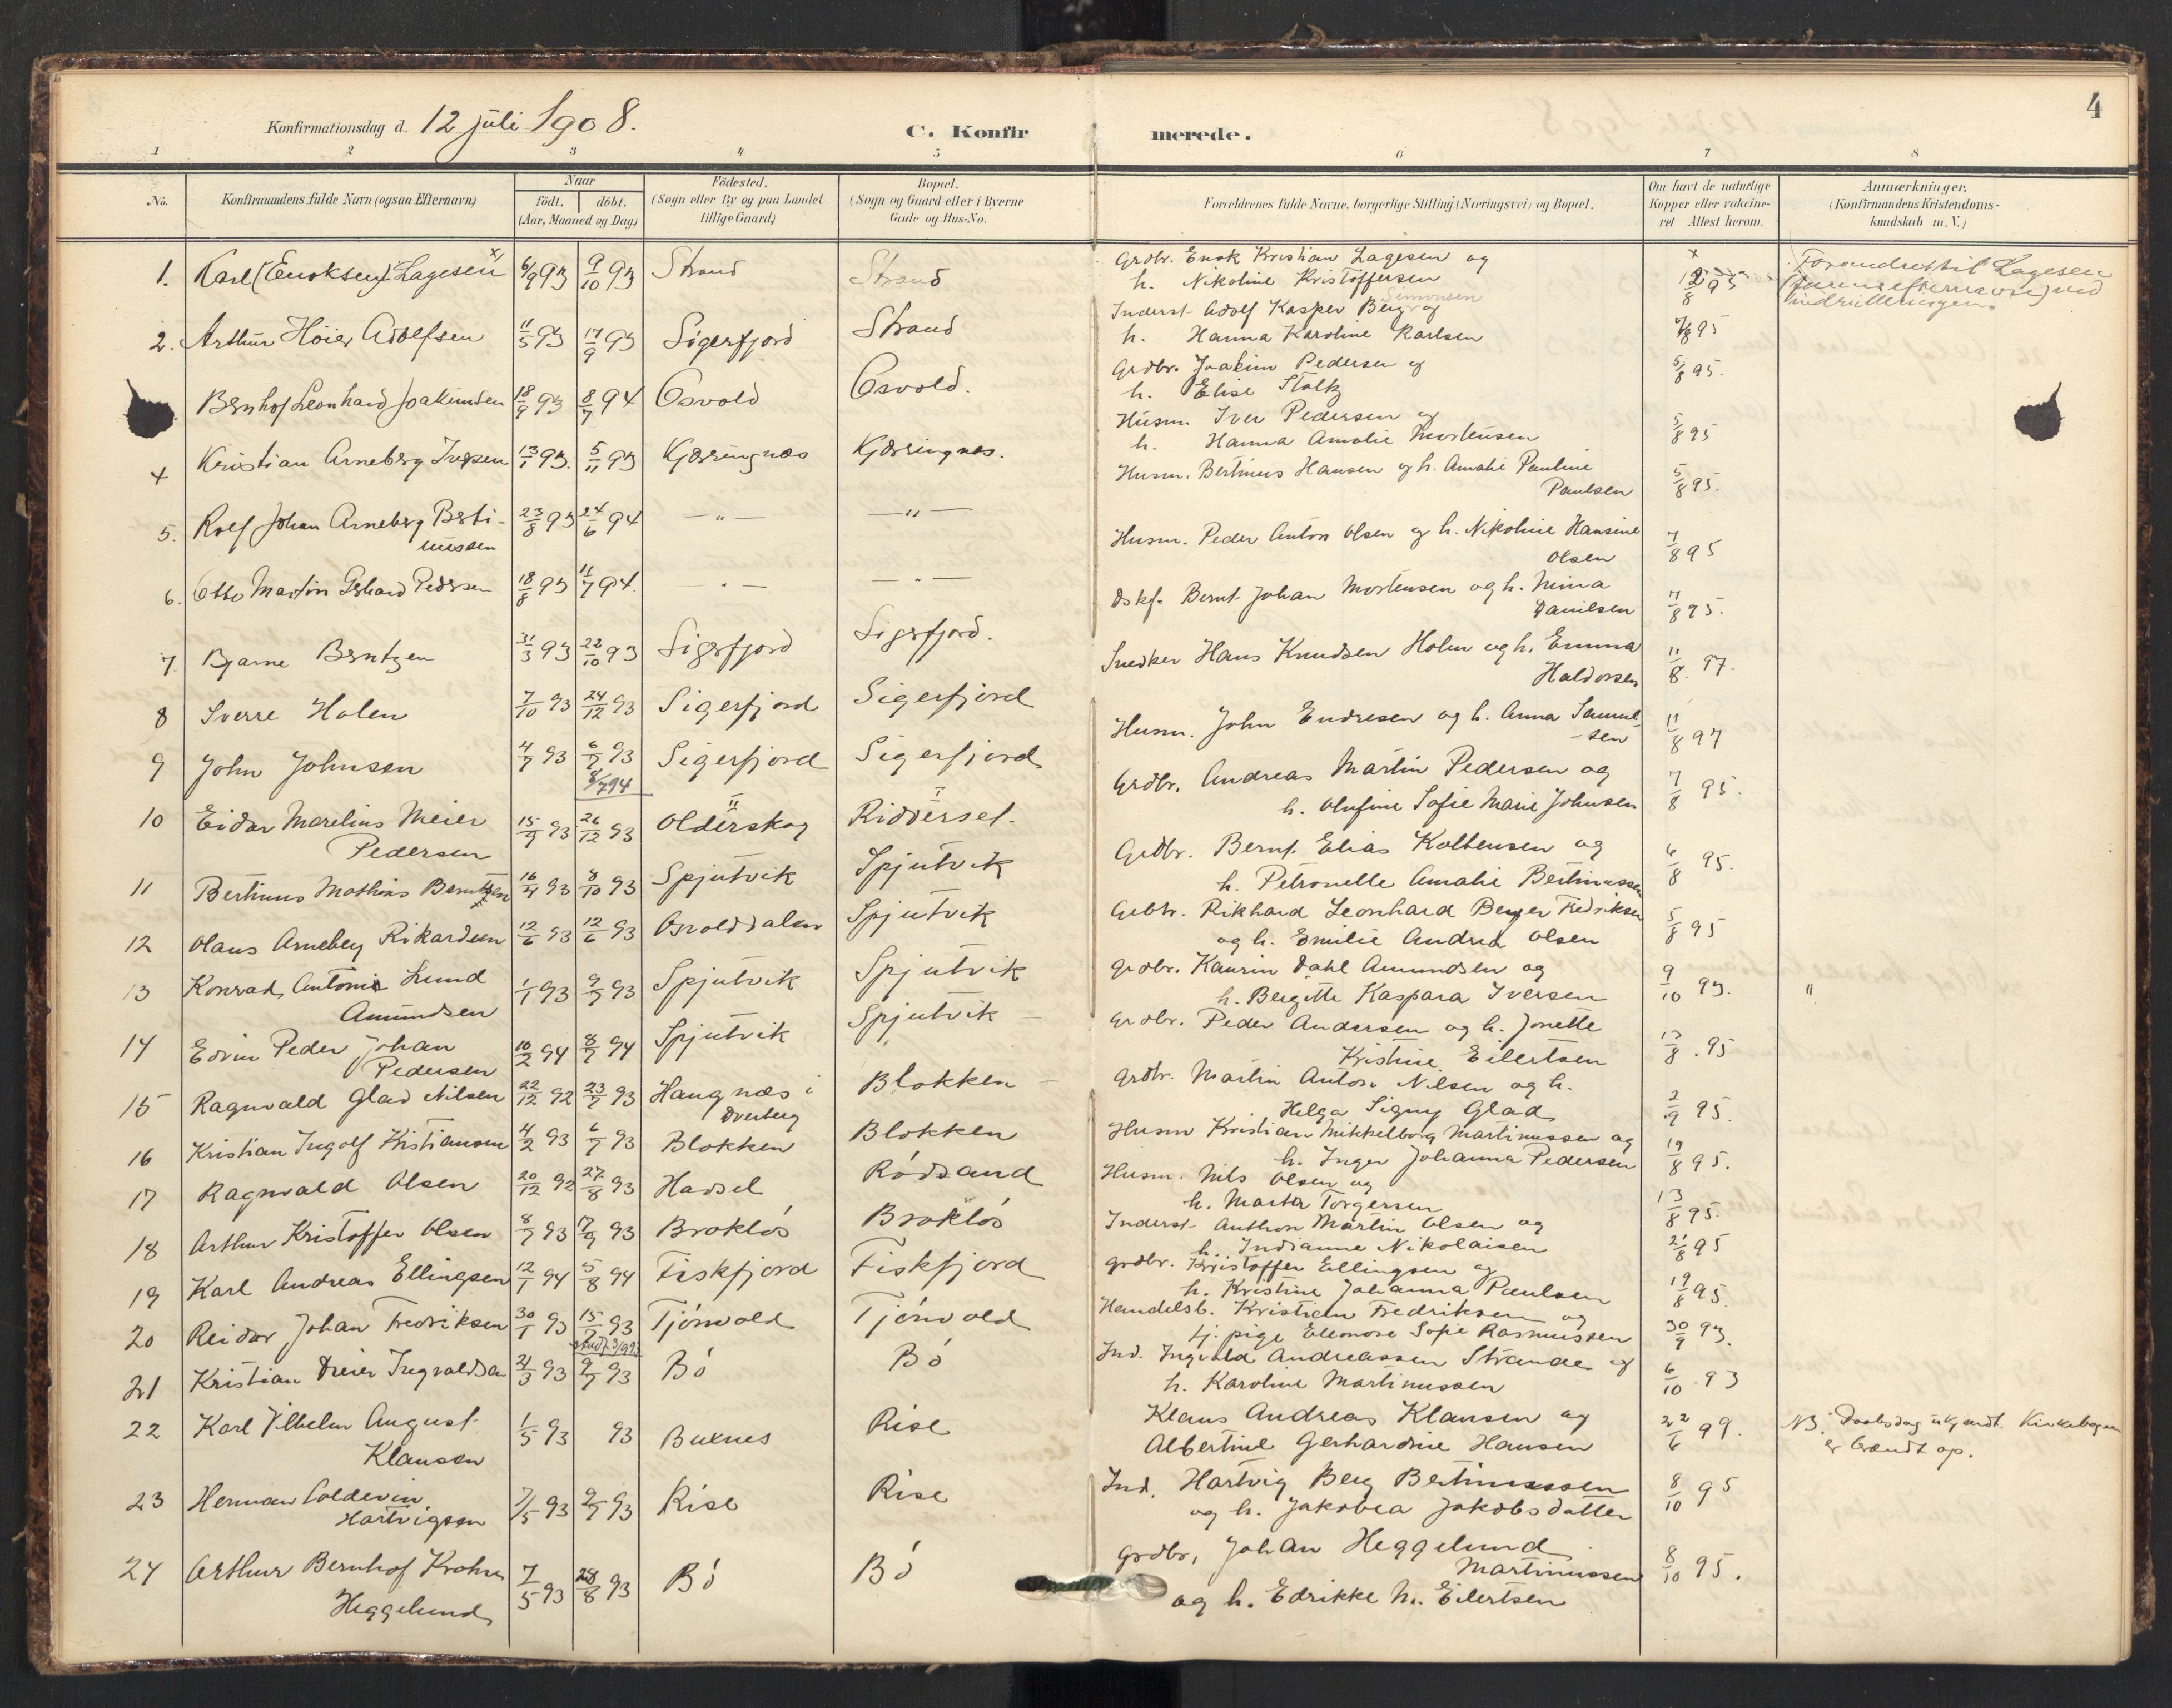 4
Konfirmationsdag d. 12 juli 1908.
C. Konfirmerede.
1 2 3 4 5 6 7 8
No. Konfirmandens fulde Navn (ogsaa Efternavn) Naar födt. döbt. (Aar, Maaned og Dag) Födested. (Sogn eller By og paa Landet tillige Gaard) Bopæl. (Sogn og Gaard eller i Byerne Gade og Hus-No. Forældrenes fulde Navne, borgerlige Stilling (Næringsvei) og Bopæl. Om havt de naturlige Kopper eller vakcineret Attest herom. Anmærkninger. (Konfirmandens Kristendomskundskab m. V.)
1. Karl (Enoksen) Lagesen x) 6/9 93 9/10 93 Strand Strand Grdbr. Enok Kristian Lagesen og
h. Nikoline Kristoffersen 8 95 Forandret til Lagesen
ved
indrulleringen.
2. Arthur Höier Adolfsen 11/5 93 17/9 93 Sigerfjord Strand Inderst Adolf Kasper Berg og Simonsen
h. Hanna Karoline Karlsen 7/8 95
Bernhof Leonhard Joakimsen 18/9 93 8/7 94 Osvold Osvold. Grdbr. Joakim Pedersen og
h. Elise Stoltz 5/8 95.
4 Kristian Arneberg Iversen 13/1 93. 5/11 93 Kjærringnæs Kjærringnæs. Husm. Iver Pedersen og
h. Hanna Amalie Mortensen 5/8 95
5. Rolf Johan Arneberg Berti-
nussen 23/8 93 24/6 94 — " — — " — Husm. Bertinus Hansen og h. Amalie Pauline
Paulsen 5/8 95.
6. Otto Martin Gerhard Pedersen 18/8 93 11/7 94. — " — — " — Husm. Peder Anton Olsen og h. Nikoline Hansine
Olsen 7/8 95
7. Bjarne Berntzen 31/3 93 22/10 93 Sigerfjord Sigerfjord. Dskf. Bernt Johan Mortensen og h. Nima
Danilsen 7/8 95.
8 Sverre Holm 7/10 93 24/12 93 Sigerfjord Sigerfjord Snedker Hans Knudsen Holm og h. Emma
Haldorsen 11/8. 97.
9 John Johnsen 4/7 93 6/7 93 Sigerfjord Sigerfjord Husm. John Endresen og h. Anna Samuel-
-sen 11/8 97
8/7 94
10 Eidar Marelius Meier
Pedersen 15/9 93 26/12 93 Olderskog Ridderset. Grdbr. Andreas Martin Pedersen og
h. Olufine Sofie Marie Johnsen 7/8 95.
11 Bertinus Mathias Berntzen 16/4 93 8/10 93 Spjutvik Spjutvik Grdbr. Bernt Elias Kolbensen og
h. Petronelle Amalie Bertinussen 6/8 95.
12 Olaus Arneberg Rikardsen 12/6 93 12/6 93 Osvolddalen Spjutvik Grdbr. Rikhard Leonhard Berger Fredriksen
og h. Emilie Andrea Olsen 5/8 95
13 Konrad Antoni Lund
Amundsen 1/1 93 9/7 93 Spjutvik Spjutvik Grdbr. Kaurin Dahl Amundsen og
h. Bergitte Kaspara Iversen 9/10 93. "
14 Edvin Peder Johan
Pedersen 10/2 94 8/7 94 Spjutvik Spjutvik Grdbr. Peder Andersen og h. Jonette
Kristine Eilertsen 13/8. 95
15 Ragnvald Glad Nilsen 22/12 92 23/7 93 Haugnæs i
Dverberg Blokken Grdbr. Martin Anton Nilsen og h.
Helga Signy Glad 2/9 95.
16 Kristian Ingolf Kristiansen 4/2 93 6/7 93 Blokken Blokken Husm Kristian Mikkelborg Martinussen og
h. Inger Johanna Pedersen 19/8 95.
17 Ragnvald Olsen 20/12 92 27/8 93 Hadsel Rödsand Husm. Nils Olsen og
h. Marta Torgersen 13/8 95.
18 Arthur Kristoffer Olsen 8/7 93 17/9 93 Brokløs Brokløs Inderst Anthon Martin Olsen og
h. Indianne Nikolaisen 21/8 95
19 Karl Andreas Ellingsen 12/1 94 5/8 94 Fiskfjord Fiskfjord Grdbr. Kristoffer Ellingsen og
h. Kristine Johanna Paulsen 19/8 95
20 Reidar Johan Fredriksen 30/1 93 15/7 93 Tjönvold Tjönvold Handelsb. Kristian Fredriksen og
tj. pige Eleonore Sofie Rasmussen 30/9 93.
21 Kristian Dreier Ingvaldsen 21/3 93 9/7 93 Bö Bö Ind. Ingvald Andreassen Strande og
h. Karoline Martinussen 6/10. 93
22 Karl Vilhelm August
Klausen 1/5 93 93 Buxnes Rise Klaus Andreas Klausen og
Albertine Gerhardine Hansen 22/6 99. NB. Daabsdag ukjendt. Kirkebogen
er brændt op.
23 Herman Coldevin
Hartvigsen 7/5 93 9/7 93 Rise Rise Ind. Hartvig Berg Bertinussen
og h. Jakobea Jakobsdatter 8/10 95
24 Arthur Bernhof Krohn
Heggelund 7/5 93 28/8 93 Bö Bö Grdbr, Johan Heggelund
Martinussen
og h. Edrikke M. Eilertsen 8/10 95.